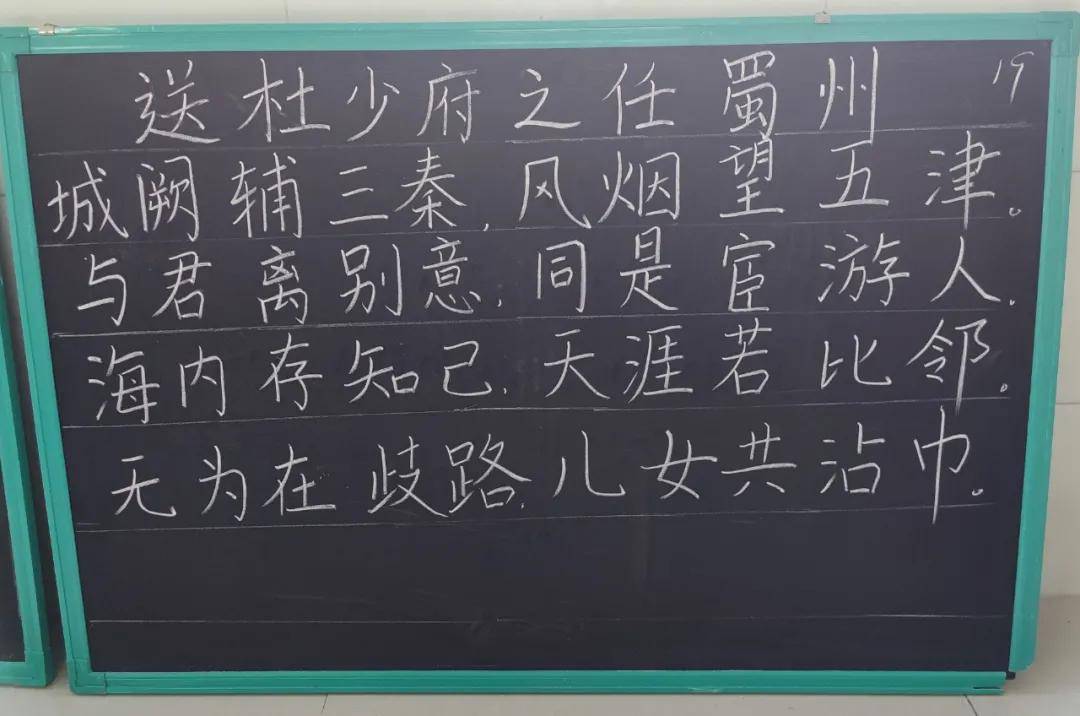 送杜少府之任蜀州 19
城阙辅三秦,风烟望五津。
与君离别意,同是宦游人.
海内存知己,天涯若比邻。
无为在歧路,儿女共沾巾。